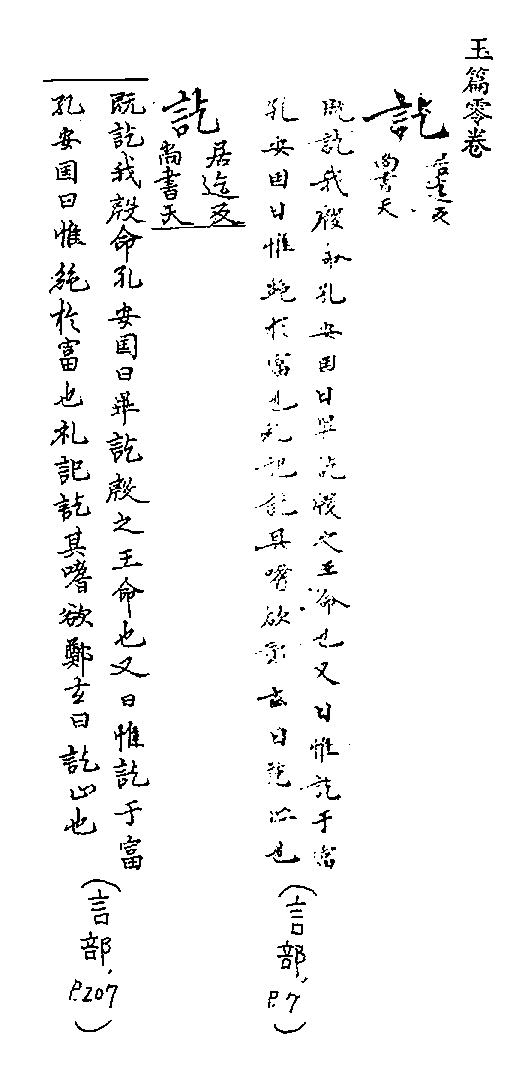 玉篇零卷
訖
居迄反
尚書天
既訖我殷命孔安国曰畢訖殷之王命也又曰惟訖于富
孔安国曰惟絶於富也礼記訖其嗜欲鄭玄曰訖止也
(言部, P.7)
訖
居迄反
尚書天
既訖我殷命孔安国曰畢訖殷之王命也又曰惟訖于富
孔安国曰惟絶於富也礼記訖其嗜欲鄭玄曰訖止也
(言部, P.207)